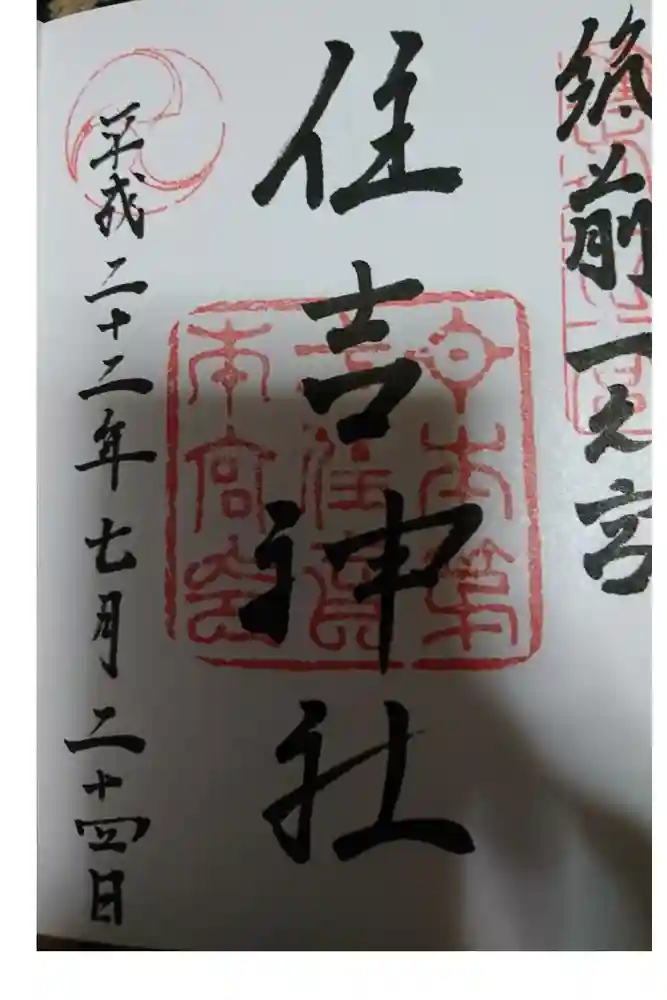 筑前一之宮
住吉神社
平成二十二年七月二十四日
日本第
一住吉
本宮